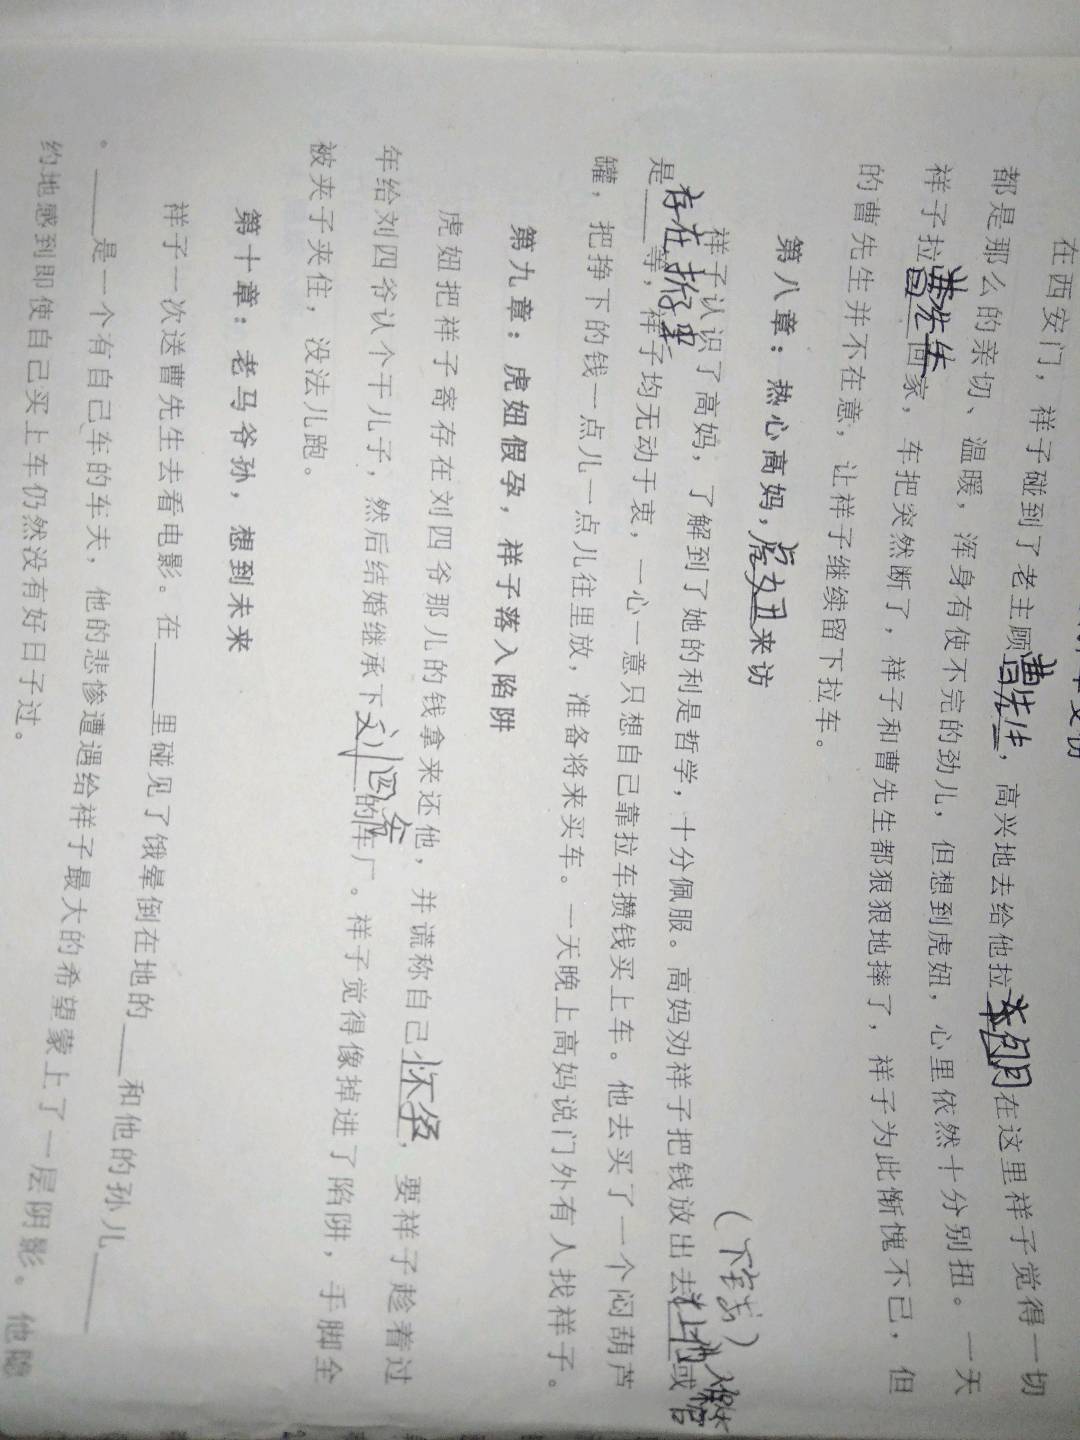 在西安门，祥子碰到了老主顾曹先生，高兴地去给他拉车包月在这里祥子觉得一切
都是那么的亲切、温暖，浑身有使不完的劲儿，但想到虎妞，心里依然十分别扭。一天
祥子拉曹先生回家，车把突然断了，祥子和曹先生都狠狠地摔了，祥子为此惭愧不已，但
的曹先生并不在意，让祥子继续留下拉车。
第八章：热心高妈，虎妞来访
祥子认识了高妈，了解到了她的利是哲学，十分佩服。高妈劝祥子把钱放出去 或
是存在折子里等，祥子均无动于衷，一心一意只想自己靠拉车攒钱买上车。他去买了一个闷葫芦
罐，把挣下的钱一点儿一点儿往里放，准备将来买车。一天晚上高妈说门外有人找祥子。
第九章：虎妞假孕，祥子落入陷阱
虎妞把祥子寄存在刘四爷那儿的钱拿来还他，并谎称自己怀孕，要祥子趁着过
年给刘四爷认个干儿子，然后结婚继承下刘四爷的车厂。祥子觉得像掉进了陷阱，手脚全
被夹子夹住，没法儿跑。
第十章：老马爷孙，想到未来
祥子一次送曹先生去看电影。在____里碰见了饿晕倒在地的____和他的孙儿____
。____是一个有自己车的车夫，他的悲惨遭遇给祥子最大的希望蒙上了一层阴影。他隐
约地感到即使自己买上车仍然没有好日子过。